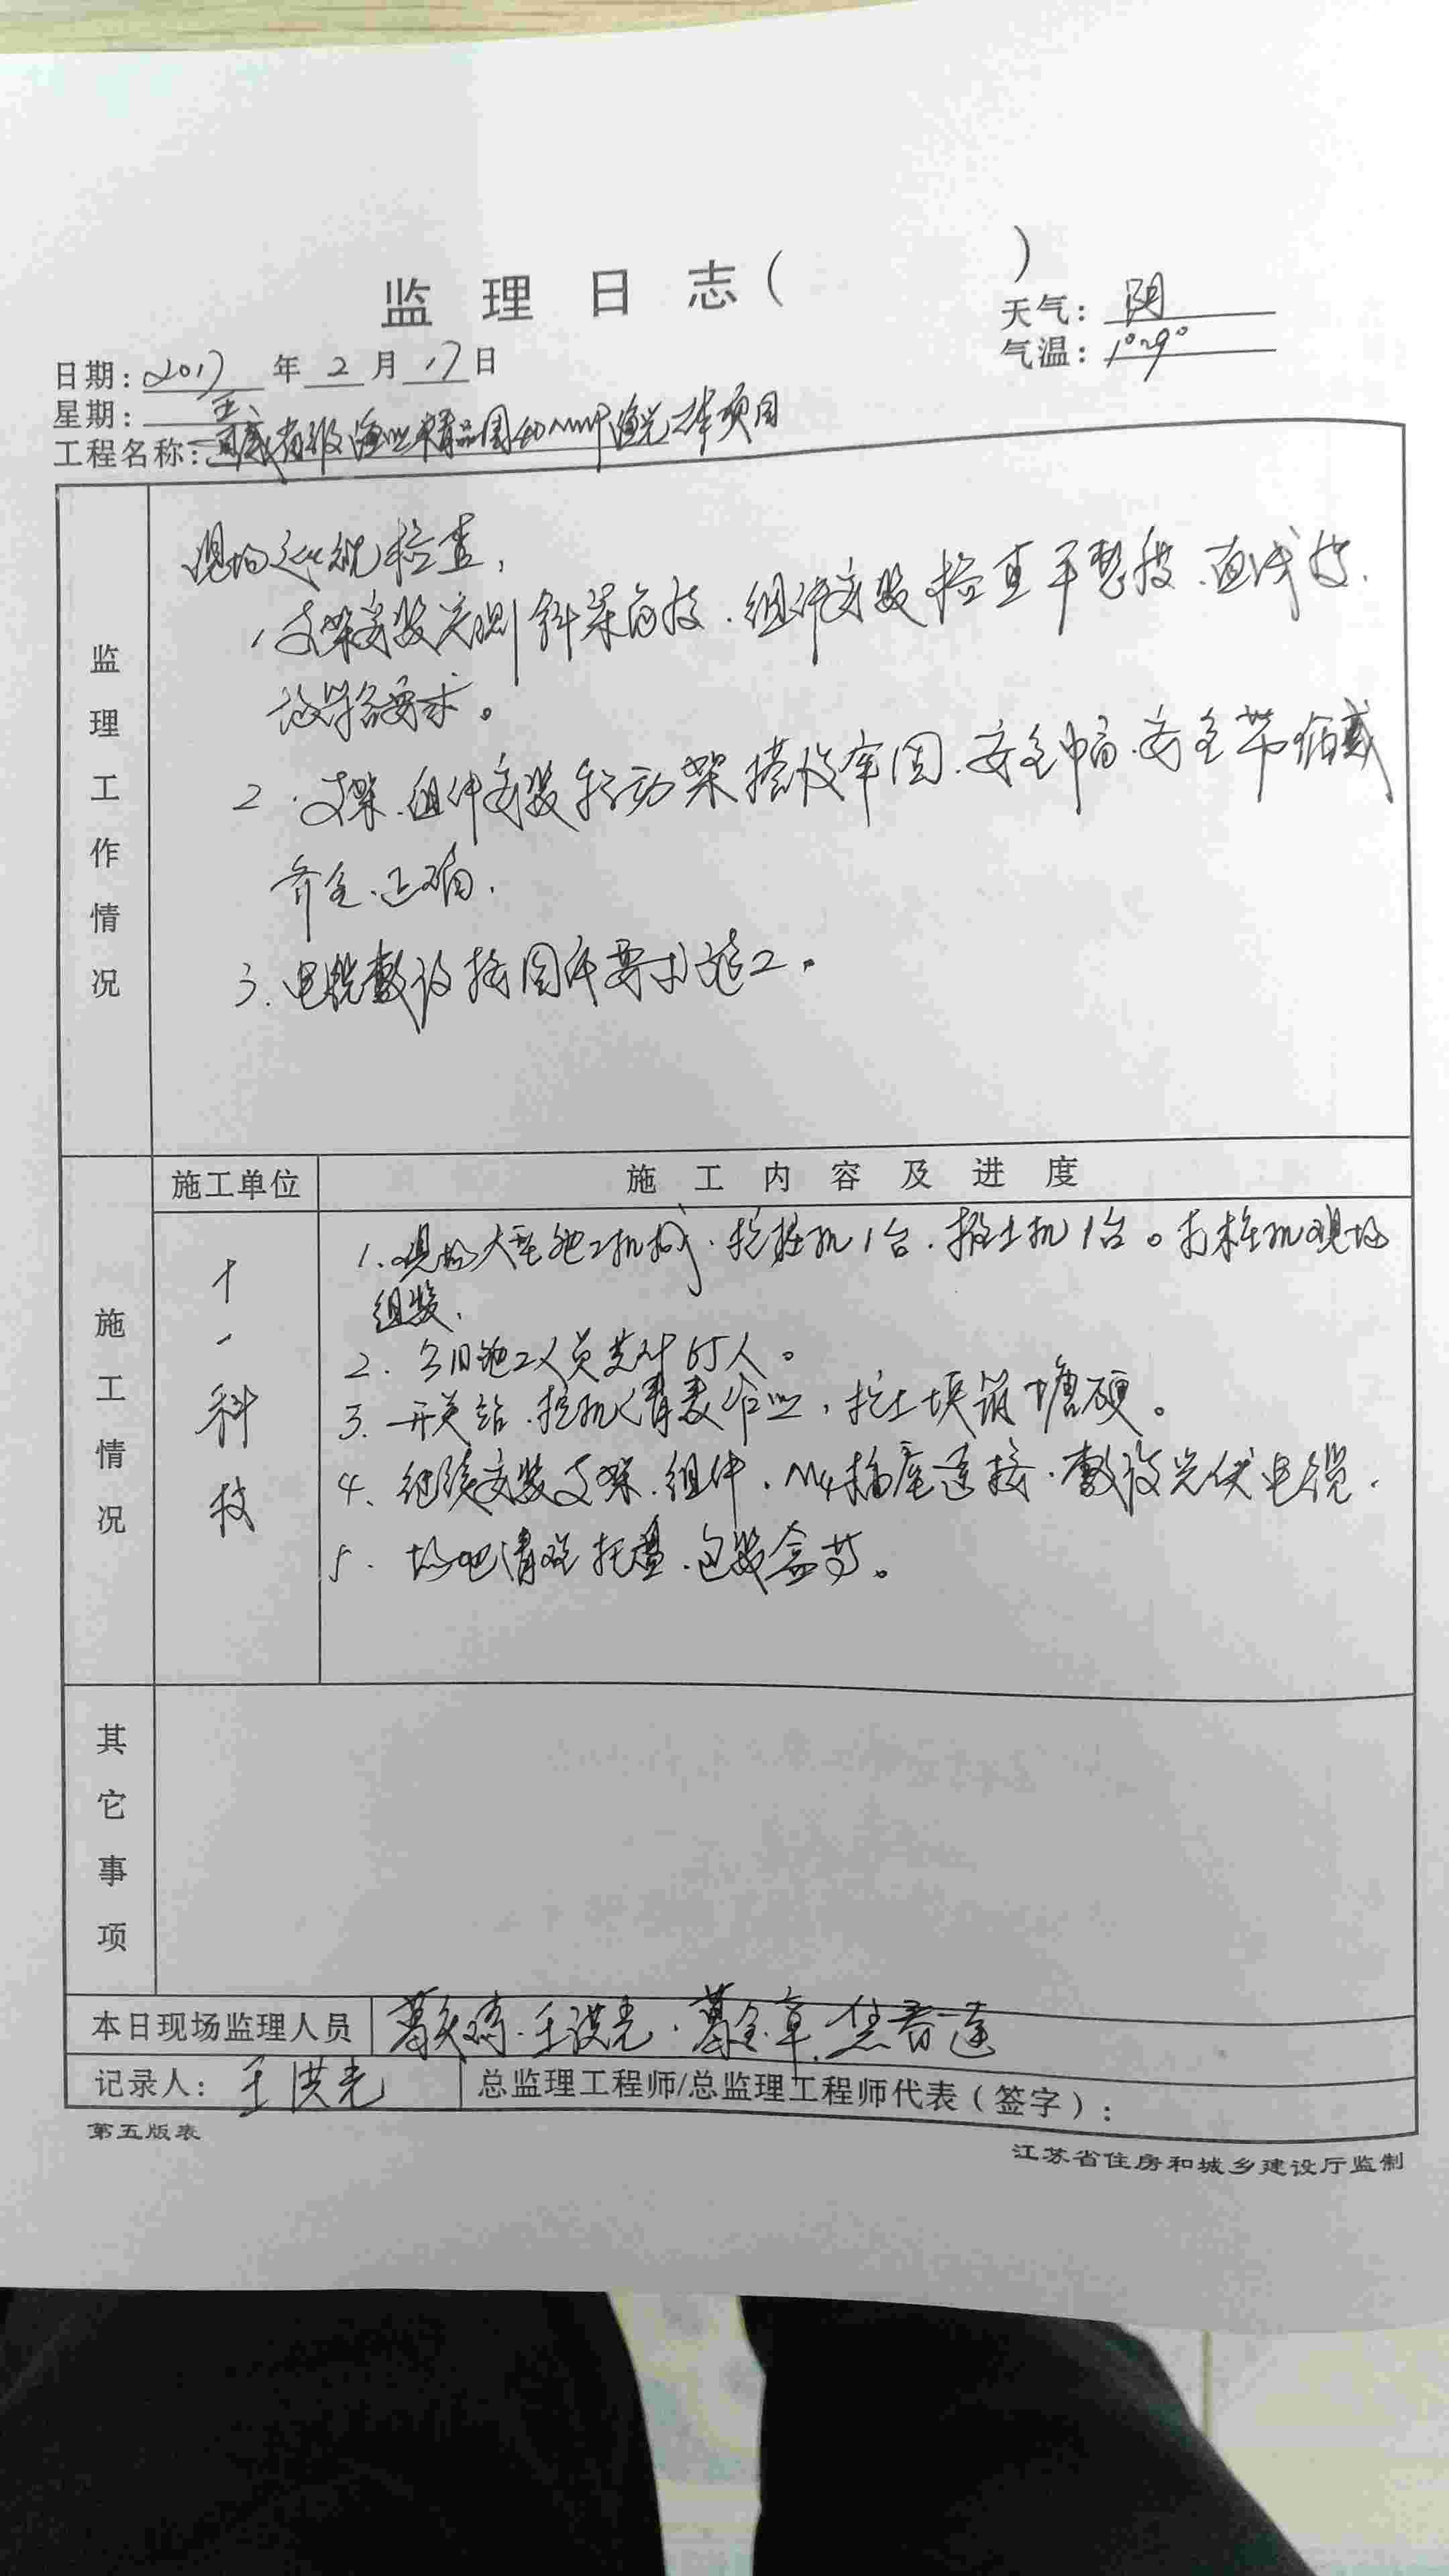 监理日志( )
天气：阴
日期：2017年2月17日
气温：1°~9°
星期：五
工程名称：省级渔业精品园40MWP渔光一体项目
监理工作情况
现场巡视检查，
1、支架安装 斜梁高 . 组件安装检查平整度、直线度.
符合要求。
2、支架、组件安装移动架搭设牢固、安全帽、安全带佩戴
齐全、正确.
3、电缆敷设按图件要求施工。
施工单位 施工内容及进度
施工情况
十一科技
1、现场大型施工机械、挖掘机1台、推土机1台。打桩机现场
组装.
2、今日施工人员共计65人。
3、开关站、挖机清表作业，挖土填 塘硬。
4、继续安装支架、组件、M4插座连接、敷设光伏电缆.
5、场地清理托盘、包装盒等。
其它事项
本日现场监理人员 王洪光、葛金章、 春莲
记录人：王洪光 总监理工程师/总监理工程师代表（签字）：
第五版表
江苏省住房和城乡建设厅监制